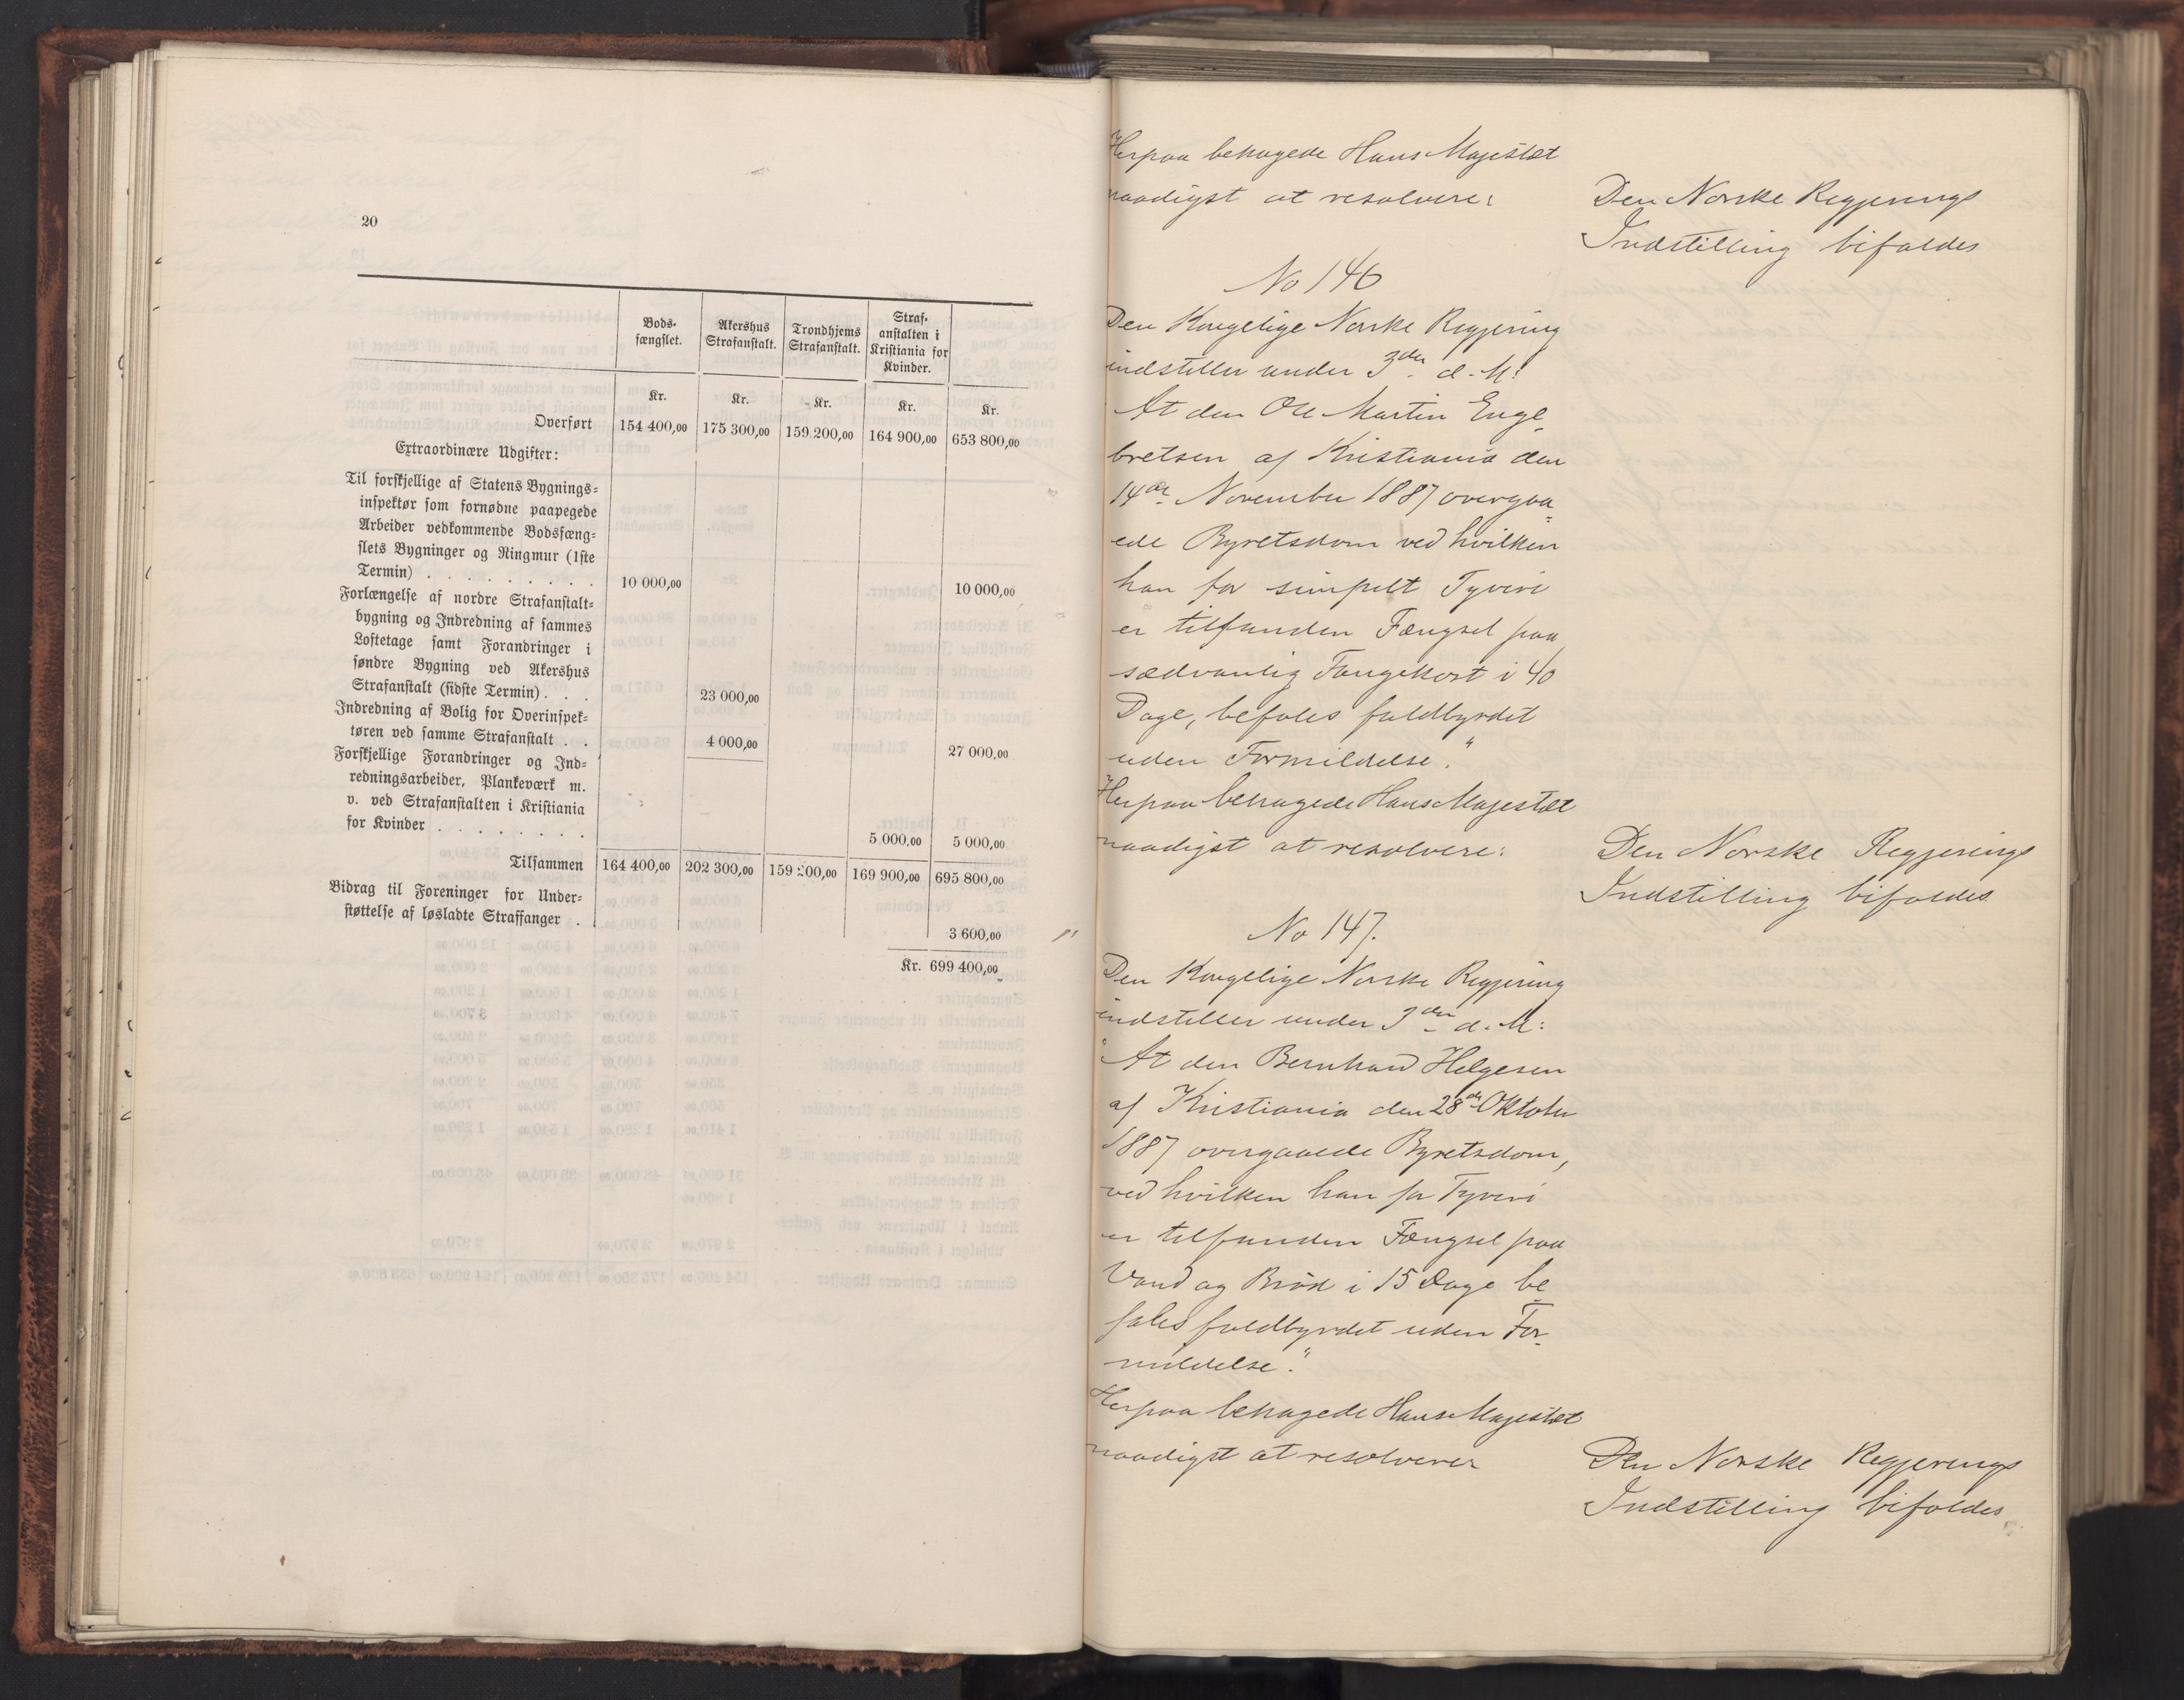 20
Bods-
fængslet.
Akershus
Strafanstalt.
Trondhjems
Strafanstalt.
Straf-
anstalten i
Kristiania for
Kvinder.
Kr. Kr. Kr. Kr. Kr.
Overført 154 400,00 175 300,00 159 200,00 164 900,00 653 800,00
Extraordinære Udgifter:
Til forskjellige af Statens Bygnings-
inspektør som fornødne paapegede
Arbeider vedkommende Bodsfæng-
slets Bygninger og Ringmur (1ste
Termin) . . . . . . . . . 10 000,00 10 000,00
Forlængelse af nordre Strafanstalt-
bygning og Indredning af sammes
Loftetage samt Forandringer i
søndre Bygning ved Akershus
Strafanstalt (sidste Termin) . . . 23 000,00
Indredning af Bolig for Overinspek-
tøren ved samme Strafanstalt . . 4 000,00 27 000,00
Forskjellige Forandringer og Ind-
redningsarbeider, Plankeværk m.
v. ved Strafanstalten i Kristiania
for Kvinder . . . . . . . . 5 000,00 5 000,00
Tilsammen 164 400,00 202 300,00 159 200,00 169 900,00 695 800,00
Bidrag til Foreninger for Under-
støttelse af løsladte Straffanger . 3 600,00
Kr. 699 400,00
Herpaa behagede Hans Majestæt
naadigst at resolvere:
Den Norske Regjerings
Indstilling bifaldes
No 146
Den Kongelige Norske Regjering
indstiller under 3die d. M:
At den Ole Martin Enge-
bretsen af Kristiania den
14de November 1887 overgaa-
ede Byretsdom ved hvilken
han for simpelt Tyveri
er tilfunden Fængsel paa
sædvanlig Fangekost i 40
Dage, befales fuldbyrdet
uden Formildelse."
Herpaa behagede Hans Majestæt
naadigst at resolvere:
Den Norske Regjerings
Indstilling bifaldes
No 147.
Den Kongelige Norske Regjering
indstiller under 3die d. M:
"At den Bernhard Helgesen
af Kristiania den 28de Oktober
1887 overgaaede Byretsdom,
ved hvilken han for Tyveri
er tilfunden Fængsel paa
Vand og Brød i 15 Dage be-
fales fuldbyrdet uden For-
mildelse."
Herpaa behagede Hans Majestæt
naadigst at resolvere:
Den Norske Regjerings
Indstilling bifaldes